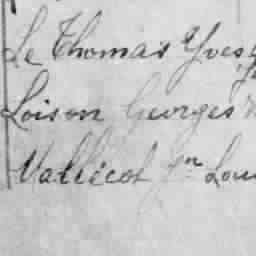 Le Thomas Yves
Loison Georges
Vallicot Jn Lou